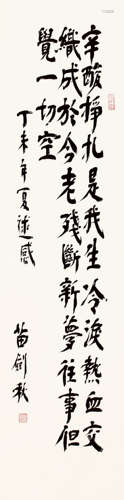 辛酸掙扎是我生冷淚熱血交
織成於今老殘斷新夢往事但
覺一切空
丁未年夏述感
苗劍秋